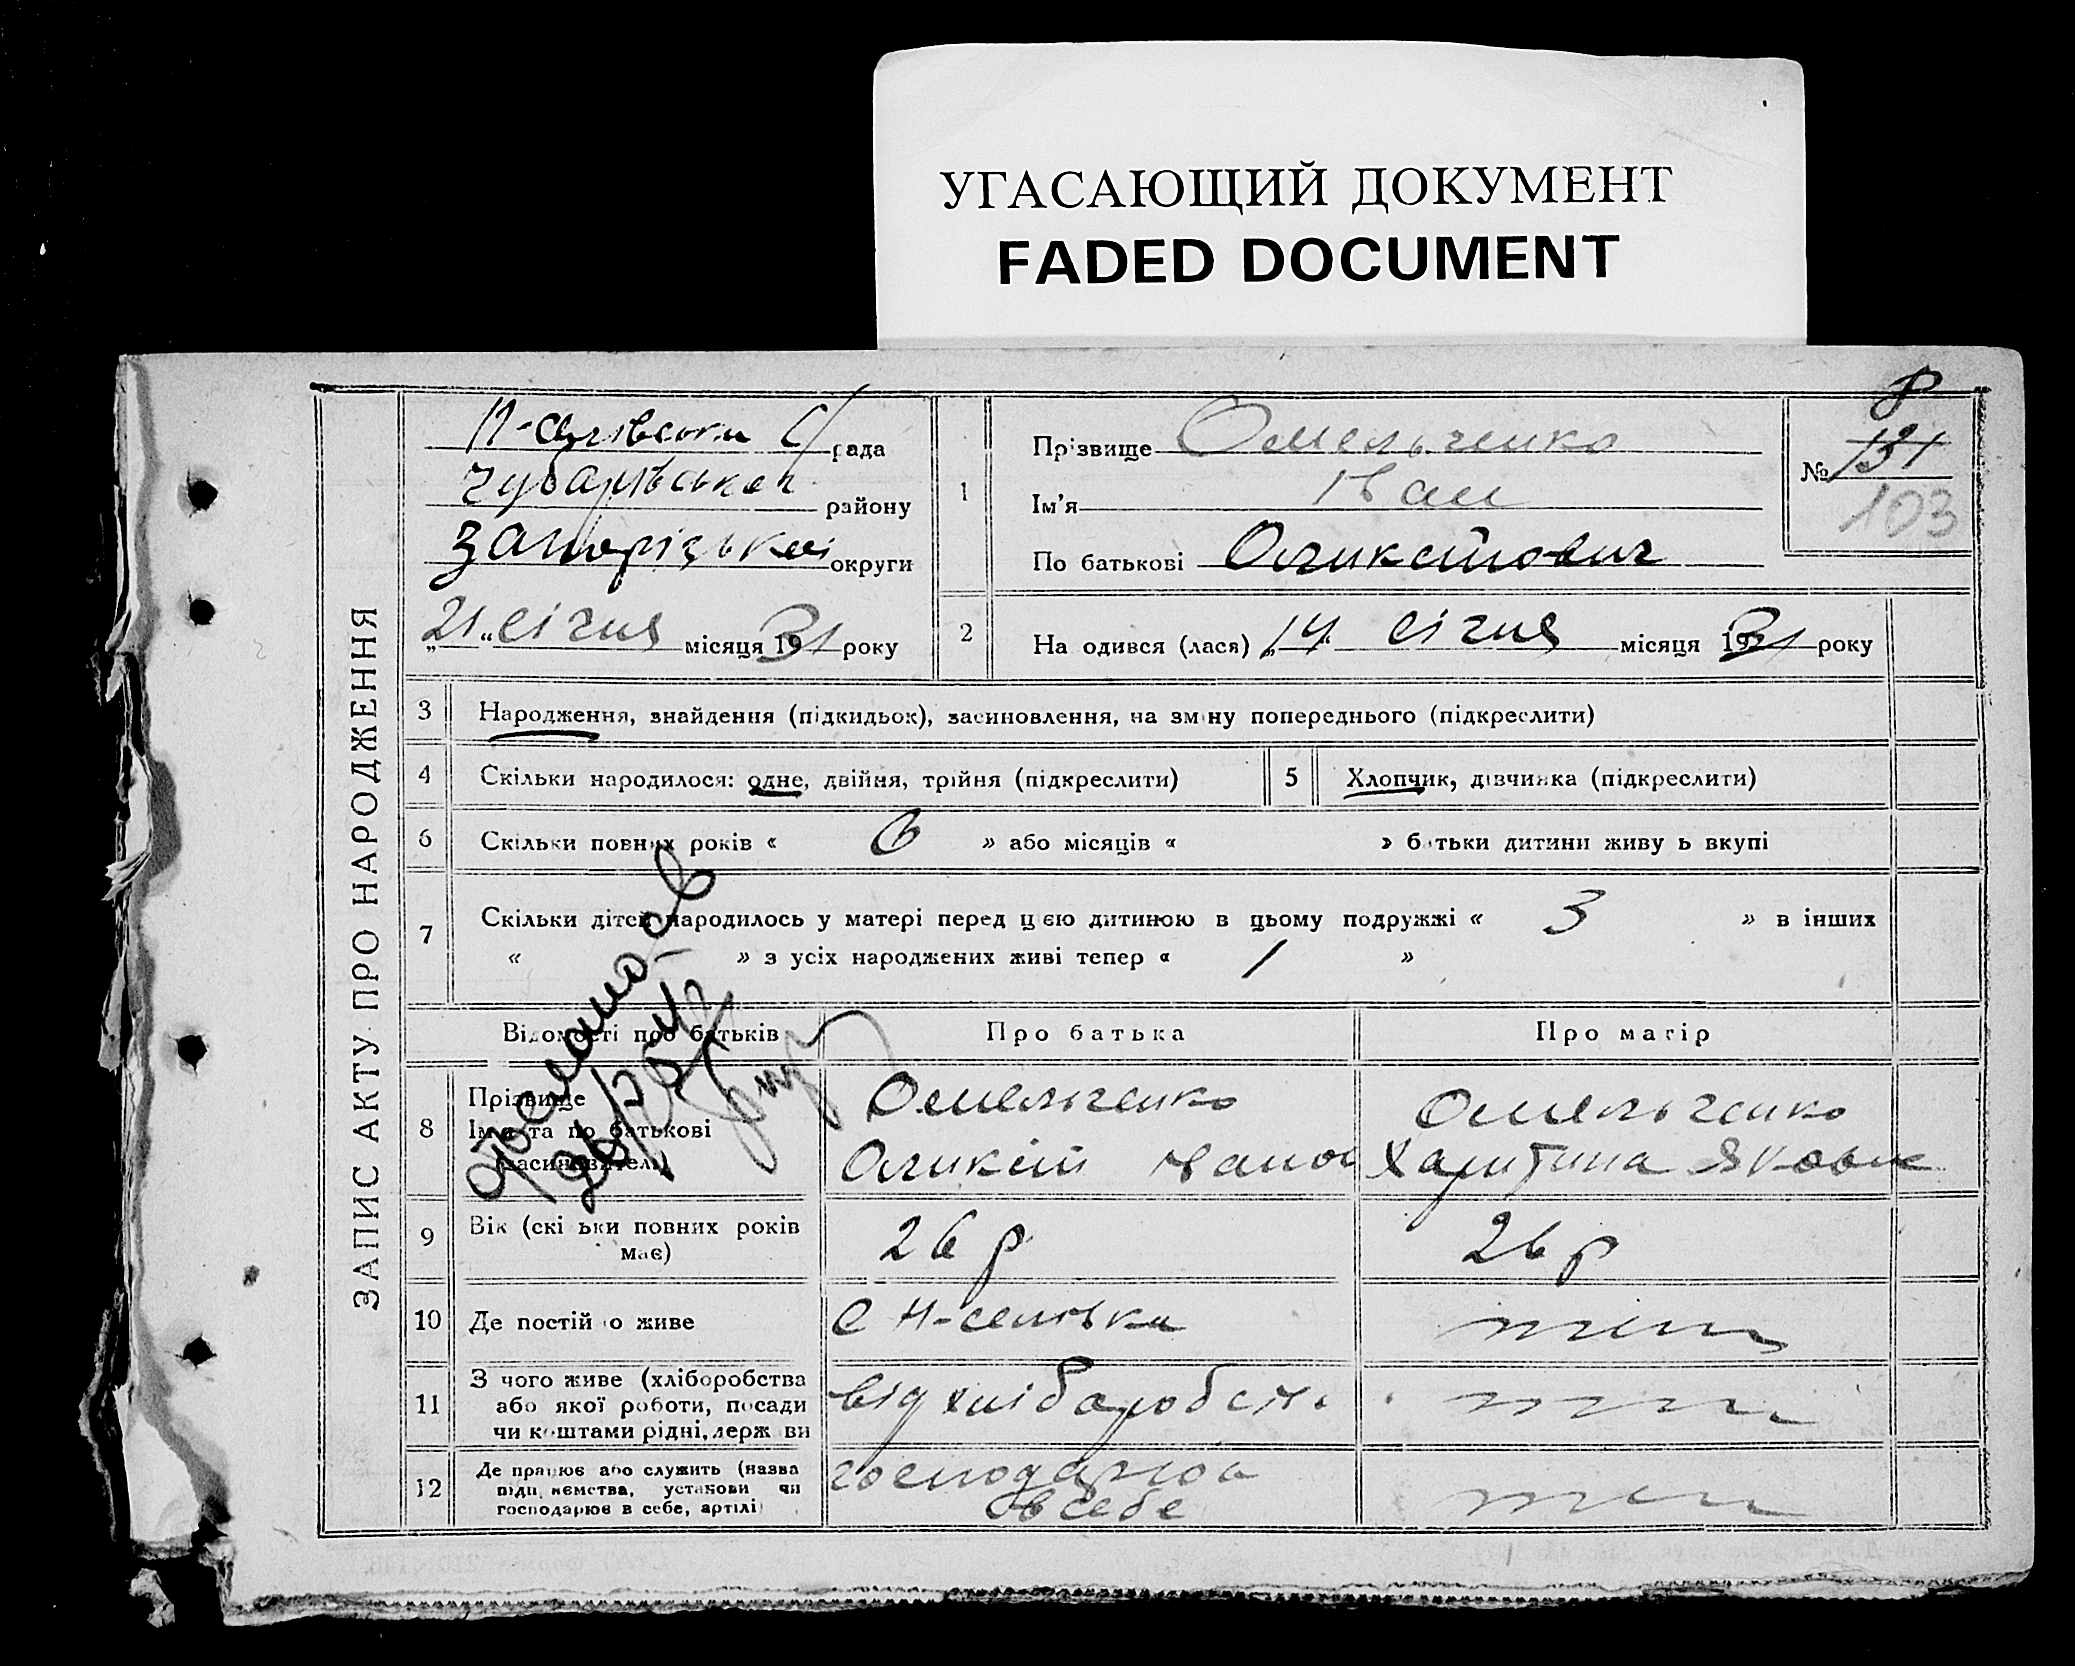 УГАСАЮЩИЙ ДОКУМЕНТ
FADED DOCUMENT
ЗАПИС АКТУ ПРО НАРОДЖЕННЯ
рада
Чубарівськоі району
Запорізькоі округи
„21“ січня місяця 1931 року
1
Прізвище Омельченко
Ім'я Іван
По батькові Оликсійович
№ 131
103
2
На одився (лася) „14“ січня місяця 1931 року
3 Народження, знайдення (підкидьок), засиновлення, на зміну попереднього (підкреслити)
4 Скільки народилося: одне, двійня, трійня (підкреслити)
5 Хлопчик, дівчинка (підкреслити)
6 Скільки повних років « 6 » або місяців « » батьки дитини живу ь вкупі
7 Скільки дітей народилось у матері перед цією дитиною в цьому подружжі « 3 » в інших
« » з усіх народжених живі тепер « 1 »
Відомості про батьків Про батька Про матір
8 Прізвище Омельченко Омельченко
Ім'я та по батькові
(засиновителі) Оликсій Іванов Харитина Яковле
9 Вік (скі ьки повних років має) 26 р 26 р
10 Де постій о живе С Н-селівка
11 З чого живе (хліборобства
або якої роботи, посади
чи коштами рідні, держ ви від хліборобст.
12 Де працює або служить (назва
підп. ємства, установи чи
господарює в себе, артілі)
в себе